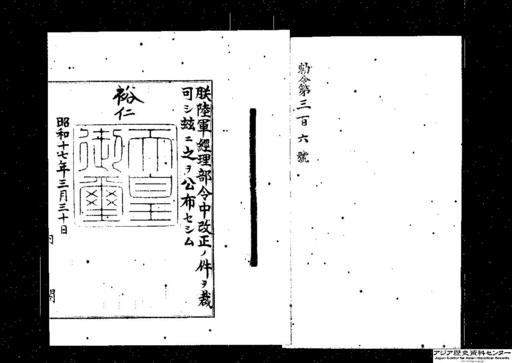 勅令第三百六號
朕陸軍經理部令中改正ノ件ヲ裁
可シ玆ニ之ヲ公布セシム
裕仁
天皇
御璽
昭和十七年三月三十日
内閣
アジア歴史資料センター
Japan Center for Asian Historical Records